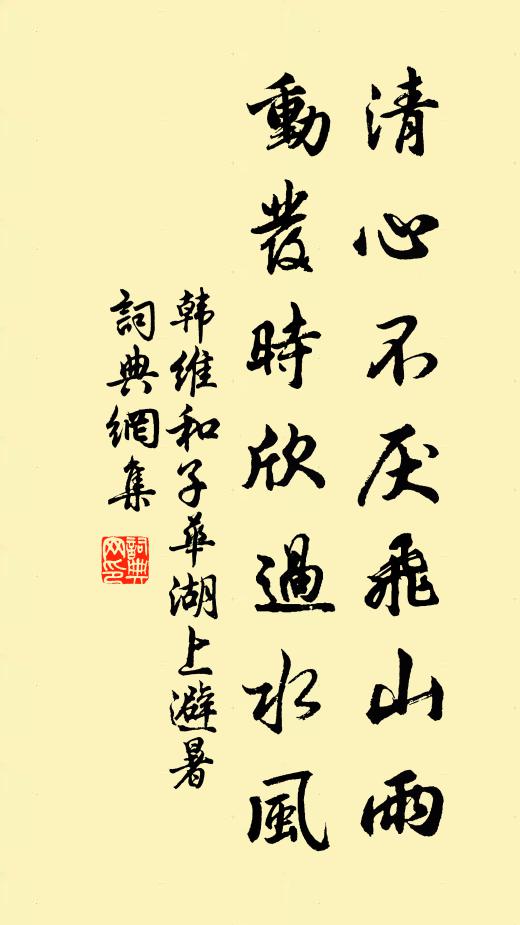 清心不厌飛山雨
動發時欣過水風
韩維和子華湖上避暑
詞典網集
詞典網印